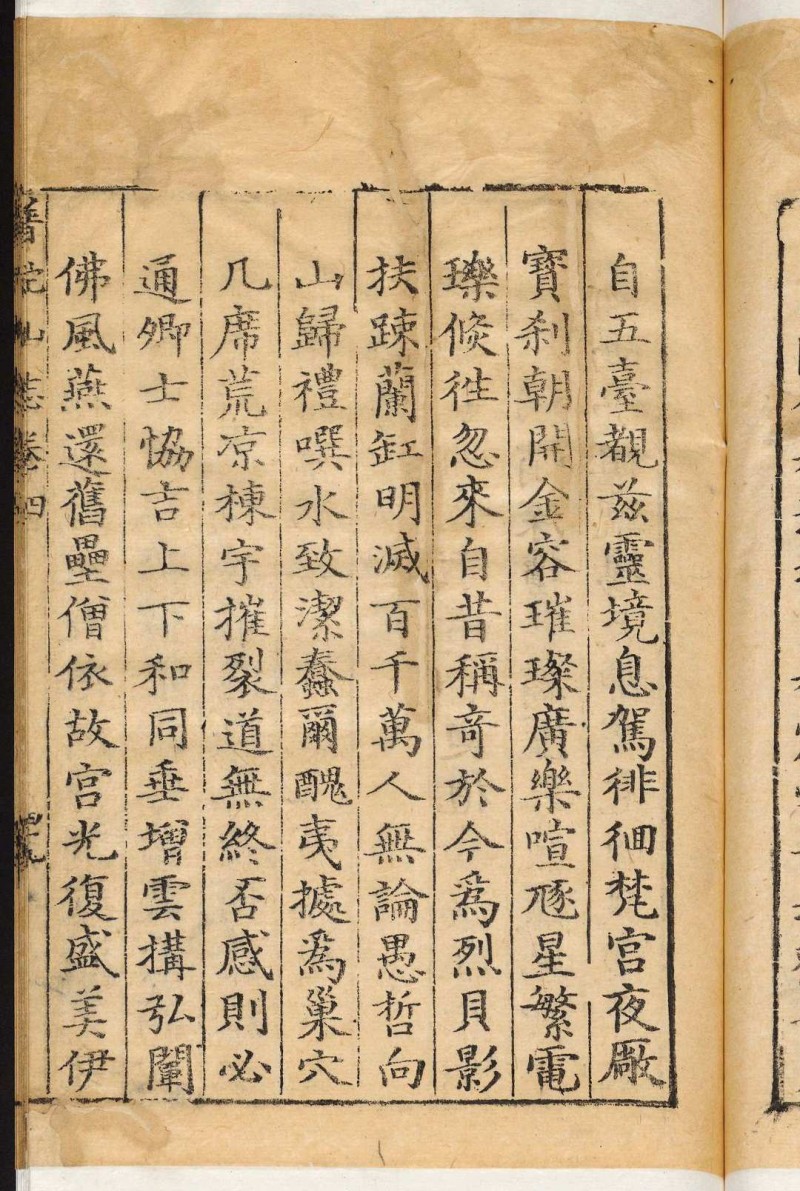 自五臺覩兹靈境息駕徘徊梵宫夜厰
寶刹朝開金容璀璨廣樂喧豗星繁電
瓅倐徃忽來自昔稱竒於今爲烈貝影
扶踈蘭缸明滅百千萬人無論愚哲向
山歸禮噀水致潔蠢爾醜夷㩀爲巢穴
几席荒凉棟宇摧裂道無終否感則必
通卿士恊吉上下和同垂增雲搆弘闡
佛風燕還舊壘僧依故宫光復盛美伊
普陀山志卷四